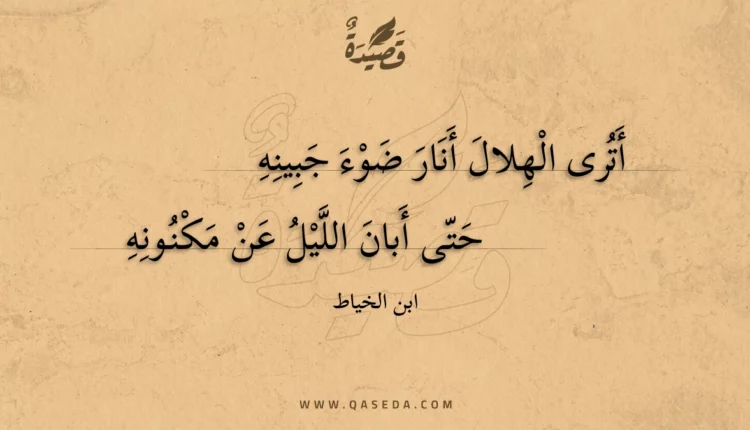 قَصِيْدَةٌ
أَتُرى الْهِلالَ أَنَارَ ضَوْءَ جَبِينِهِ
حَتّى أَبانَ اللَّيْلُ عَنْ مَكْنُونِهِ
ابن الخياط
WWW.QASEDA.COM